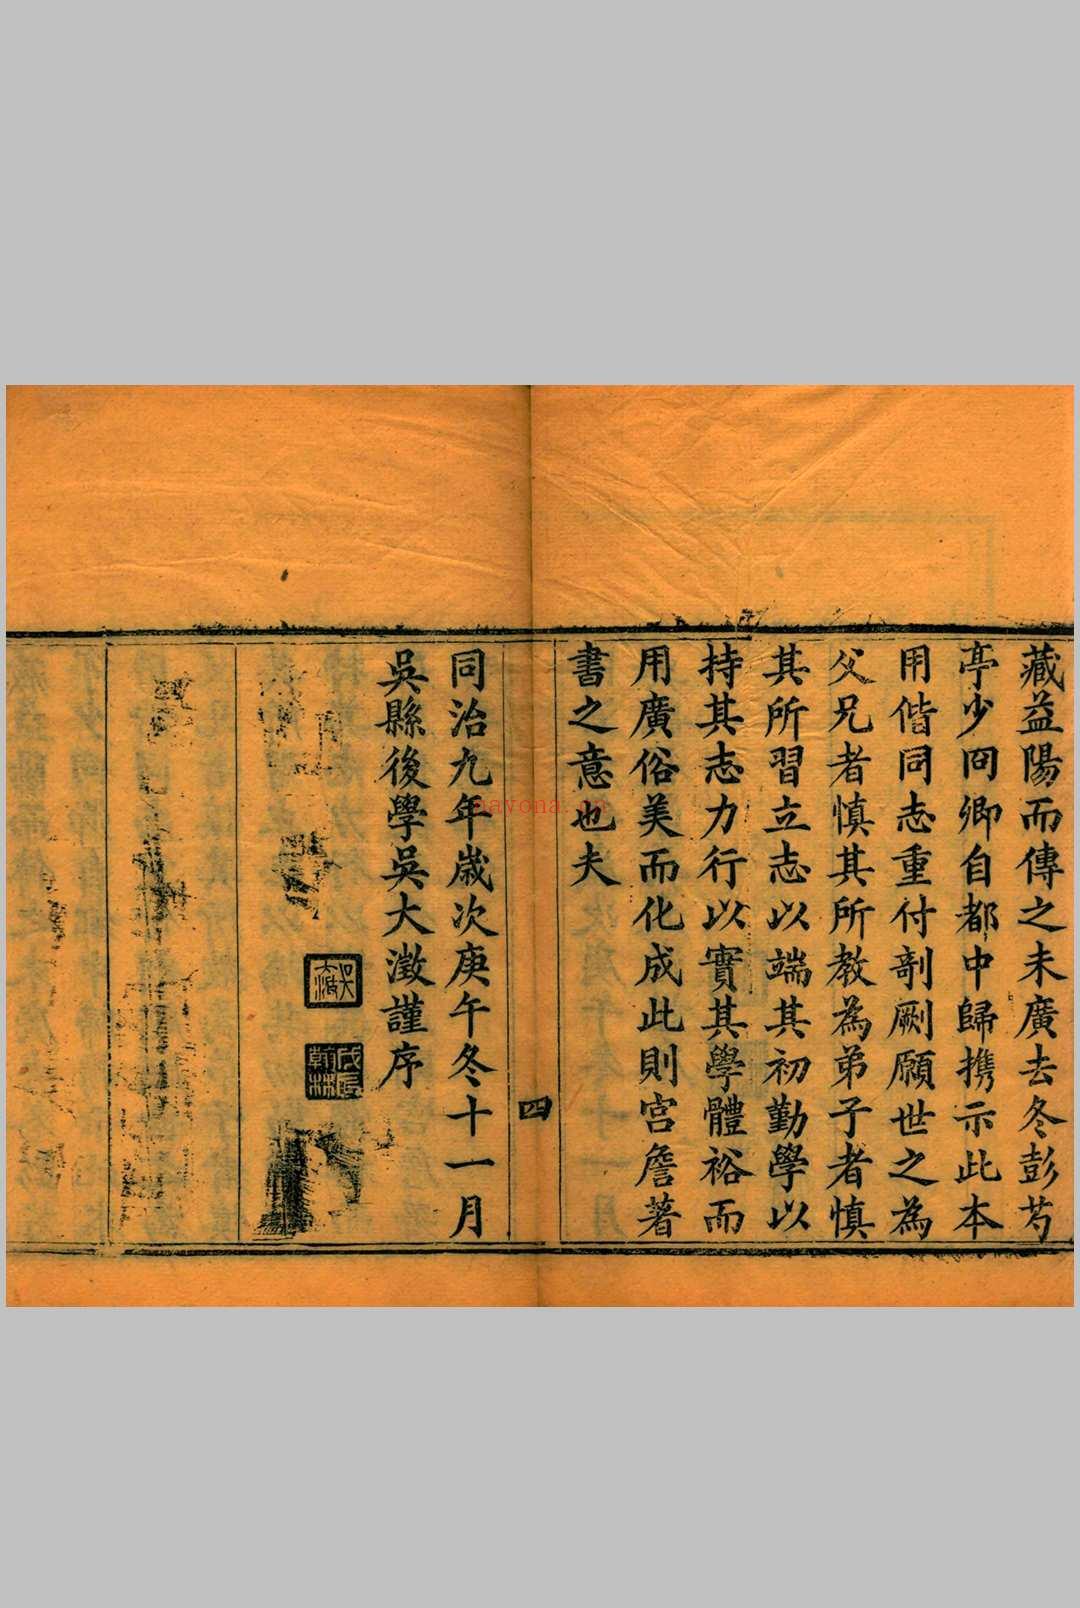 藏益陽而傳之未廣去冬彭芍
亭少冏卿自都中歸携示此本
用偕同志重付剞劂願世之為
父兄者慎其所教為弟子者慎
其所習立志以端其初勤學以
持其志力行以實其學體裕而
用廣俗美而化成此則宮詹著
書之意也夫
四
同治九年歲次庚午冬十一月
吳縣後學吳大澂謹序
吳大澂
戊辰翰林
nayona.cn